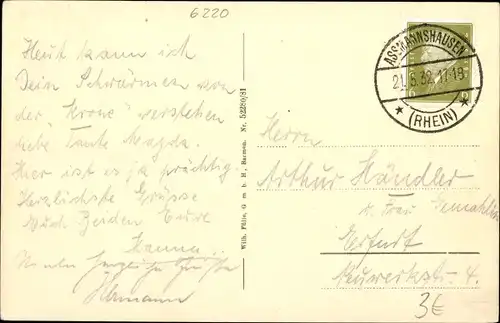 6220
Heut kann ich
Dein Schwärmen von
der "Krone" verstehen
liebe Tante Magda.
Hier ist es ja prächtig.
Herzlichste Grüsse
Euch Beiden Eure
Hanna.
Hermann
Wilh. Fülle, G. m. b. H., Barmen. Nr. 52280/81
ASSMANNSHAUSEN
32.11-19
★ (RHEIN) ★
Herrn
Arthur Händler
u. Frau Gemahlin
Erfurt
Neuwerkstr. 4.
3€